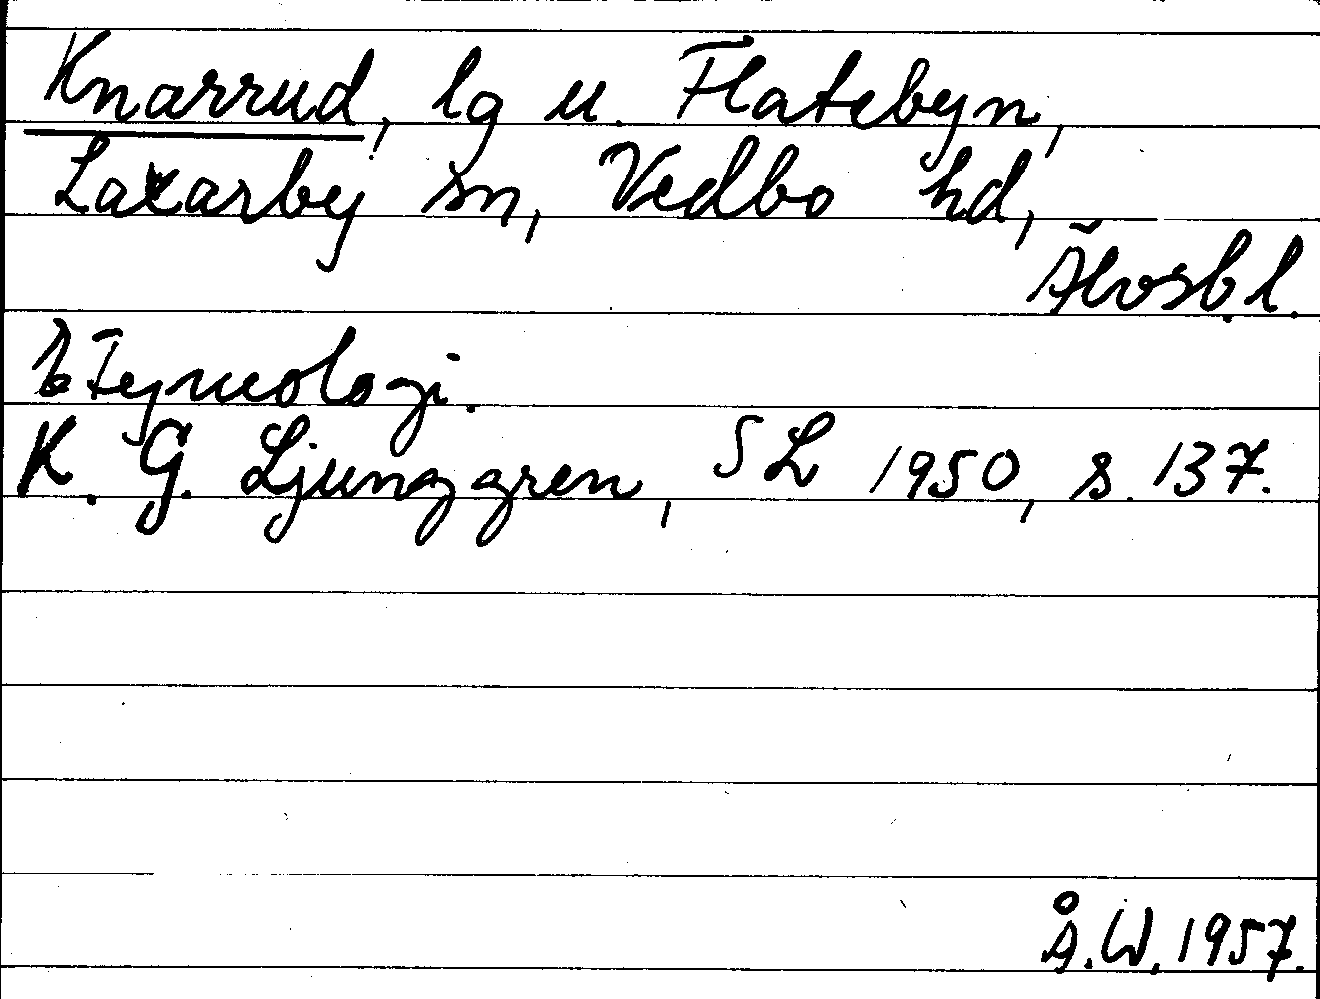 Knarrud, lg u. Flatebyn,
Laxarby sn, Vedbo hd,
Älvsb.l.
Etymologi.
K. G. Ljunggren, SL 1950, s. 137.
Å.W. 1957.